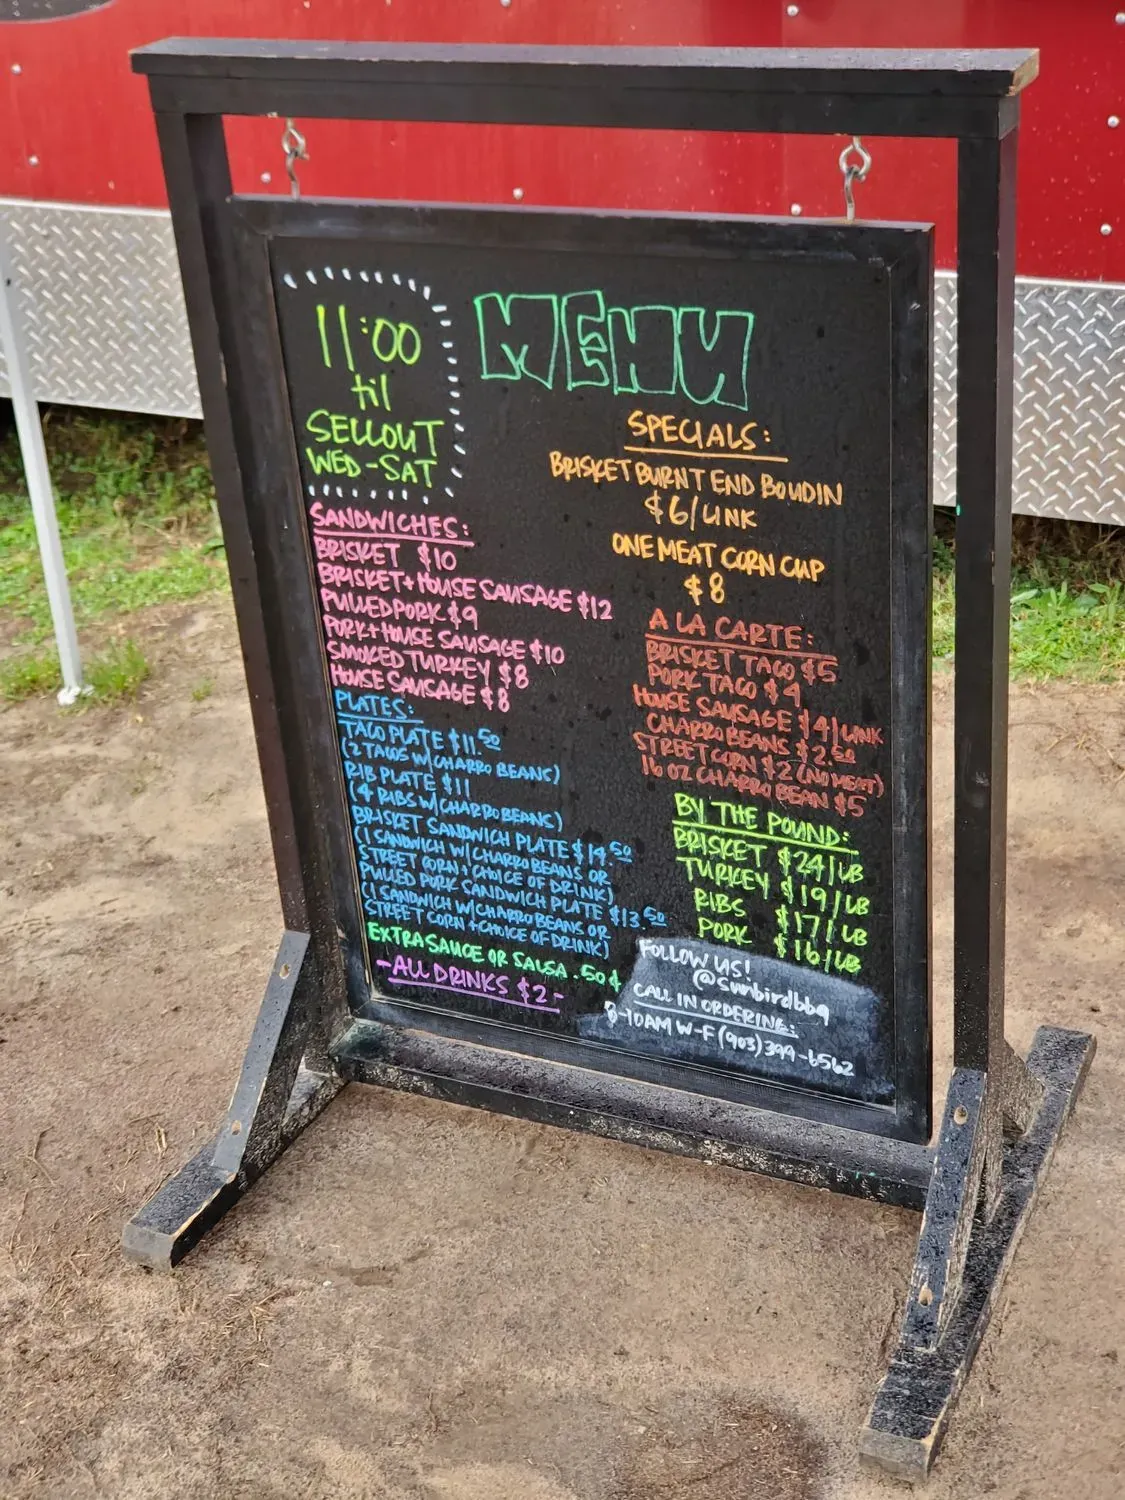 11:00
til
SELLOUT
WED-SAT
MENU
SPECIALS:
BRISKET BURNT END BOUDIN
$6/LINK
ONE MEAT CORN CUP
$8
SANDWICHES:
BRISKET $10
BRISKET + HOUSE SAUSAGE $12
PULLED PORK $9
PORK + HOUSE SAUSAGE $10
SMOKED TURKEY $8
HOUSE SAUSAGE $8
PLATES:
TACO PLATE $11.50
(2 TACOS W/CHARRO BEANS)
RIB PLATE $11
(4 RIBS W/CHARRO BEANS)
BRISKET SANDWICH PLATE $14.50
(1 SANDWICH W/CHARRO BEANS OR
STREET CORN + CHOICE OF DRINK)
PULLED PORK SANDWICH PLATE $13.50
(1 SANDWICH W/CHARRO BEANS OR
STREET CORN + CHOICE OF DRINK)
EXTRA SAUCE OR SALSA .50¢
-ALL DRINKS $2-
A LA CARTE:
BRISKET TACO $5
PORK TACO $4
HOUSE SAUSAGE $4/LINK
CHARRO BEANS $2.50
STREET CORN $2 (NO MEAT)
16 OZ CHARRO BEAN $5
BY THE POUND:
BRISKET $24/LB
TURKEY $19/LB
RIBS $17/LB
PORK $16/LB
FOLLOW US!
@sunbirdbbq
CALL IN ORDERING:
8-10AM W-F (903)399-6562